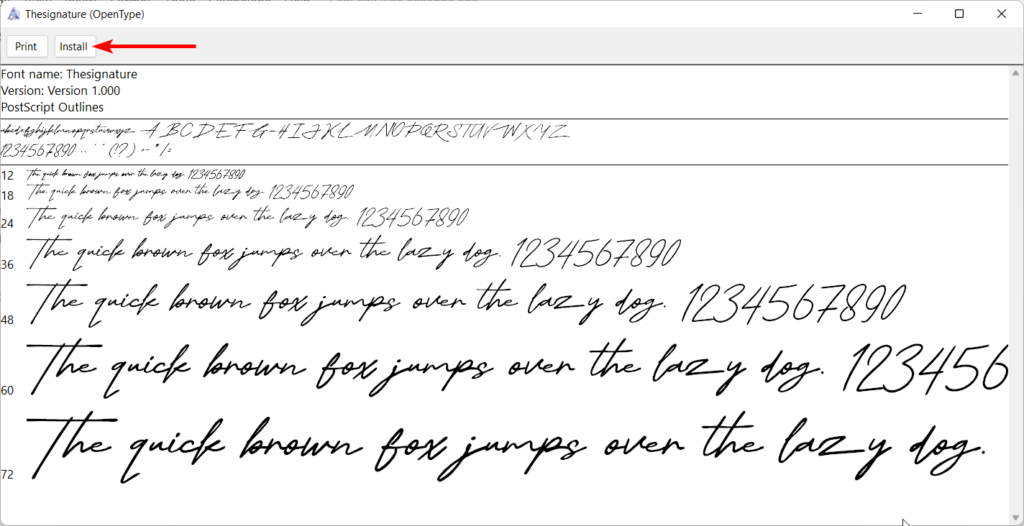 Thesignature (OpenType)
Print Install
Font name: Thesignature
Version: Version 1.000
PostScript Outlines
abcdefghijklmnopqrstuvwxyz ABCDEFGHIJKLMNOPQRSTUVWXYZ
1234567890
12 The quick brown fox jumps over the lazy dog. 1234567890
18 The quick brown fox jumps over the lazy dog. 1234567890
24 The quick brown fox jumps over the lazy dog. 1234567890
36 The quick brown fox jumps over the lazy dog. 1234567890
48 The quick brown fox jumps over the lazy dog. 1234567890
60 The quick brown fox jumps over the lazy dog. 123456
72 The quick brown fox jumps over the lazy dog.